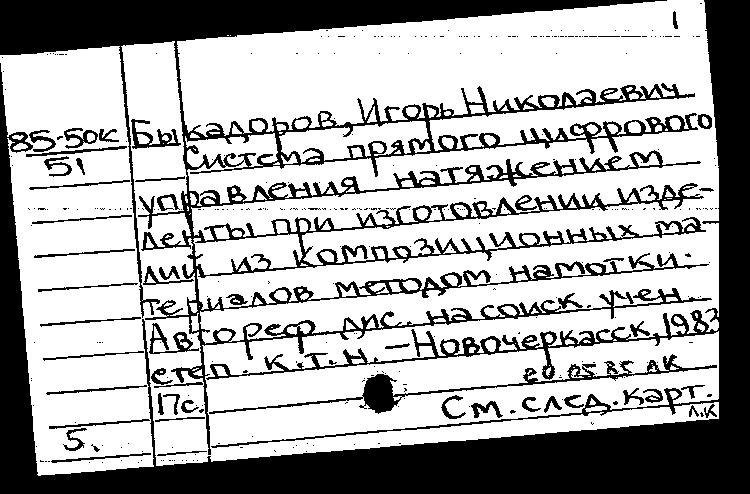 1
85-50к Быкадоров, Игорь Николаевич
51 Система прямого цифрового
управления натяжением
ленты при изготовлении изде-
лий из композиционных ма-
териалов методом намотки:
Автореф. дис. на соиск. учен.
степ. к.т.н. – Новочеркасск, 1983
20.05.85 АК
17с.
См. след. карт.
5. Л.К